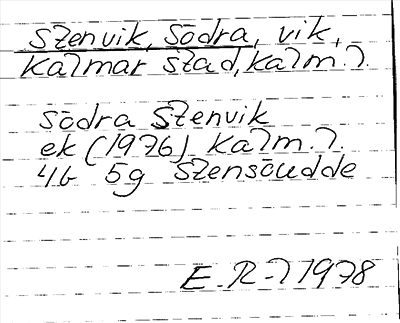 Stenvik, Södra, vik,
Kalmar stad, Kalm. l.
Södra Stenvik
ek (1976) Kalm. l.
4G 5g Stensöudde
E. R-l 1978